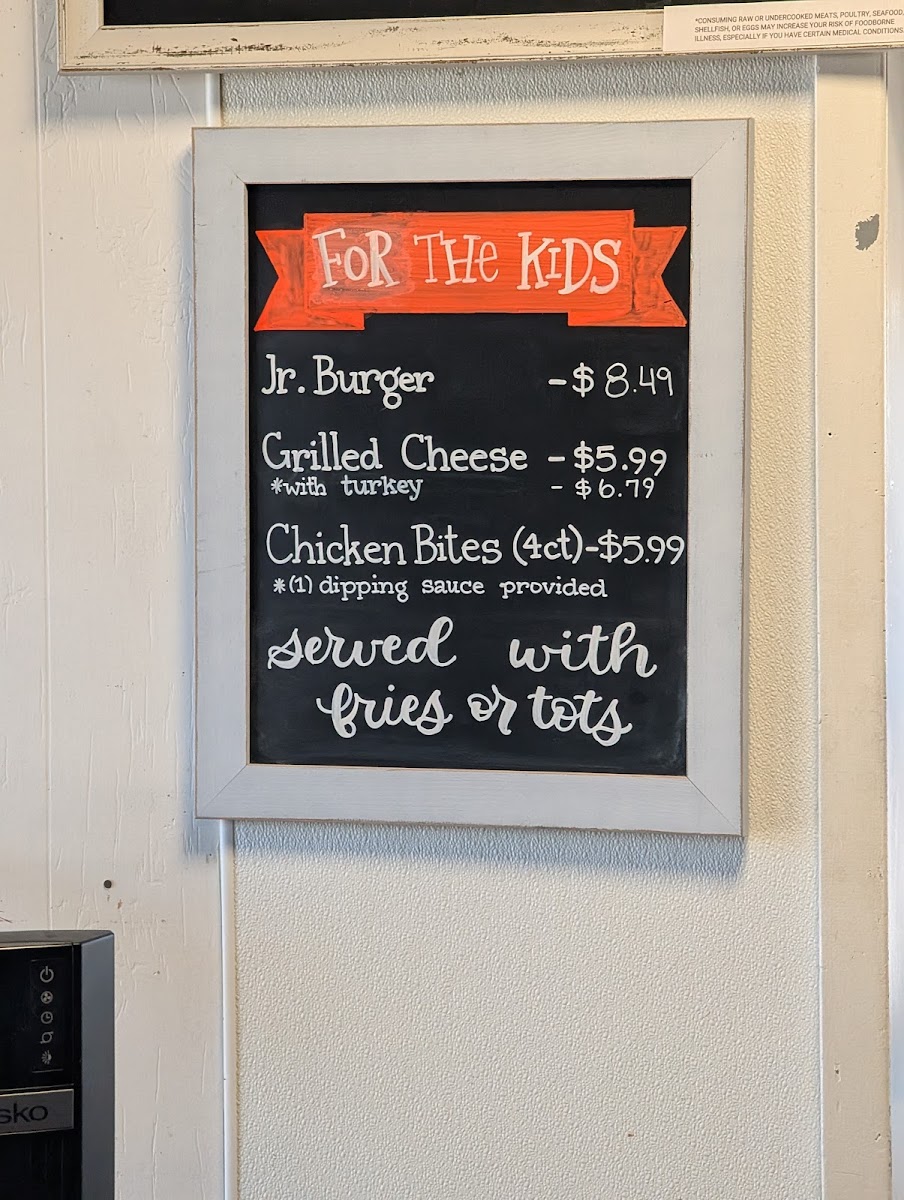 *CONSUMING RAW OR UNDERCOOKED MEATS, POULTRY, SEAFOOD,
SHELLFISH, OR EGGS MAY INCREASE YOUR RISK OF FOODBORNE
ILLNESS, ESPECIALLY IF YOU HAVE CERTAIN MEDICAL CONDITIONS.
FOR THE KIDS
Jr. Burger - $ 8.49
Grilled Cheese - $5.99
*with turkey - $6.79
Chicken Bites (4ct) - $5.99
*(1) dipping sauce provided
served with
fries or tots
sko